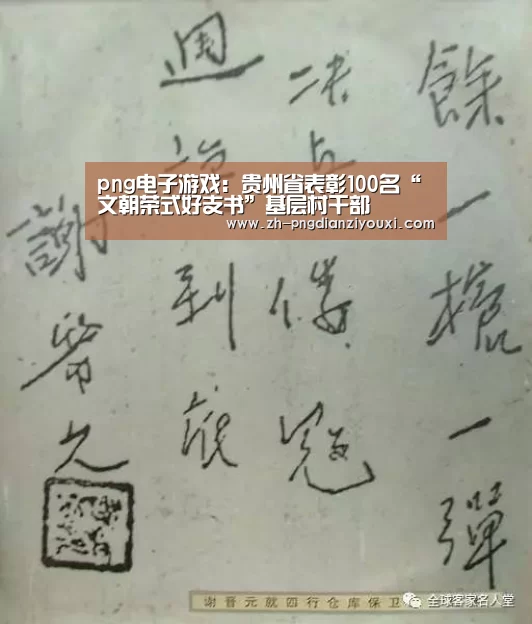 餘一槍一彈
决与倭寇
週到底
謝晋元
png电子游戏：贵州省表彰100名“
文朝荣式好支书”基层村干部
www.zh-pngdianziyouxi.com
谢晋元就四行仓库保卫
全球客家名人堂